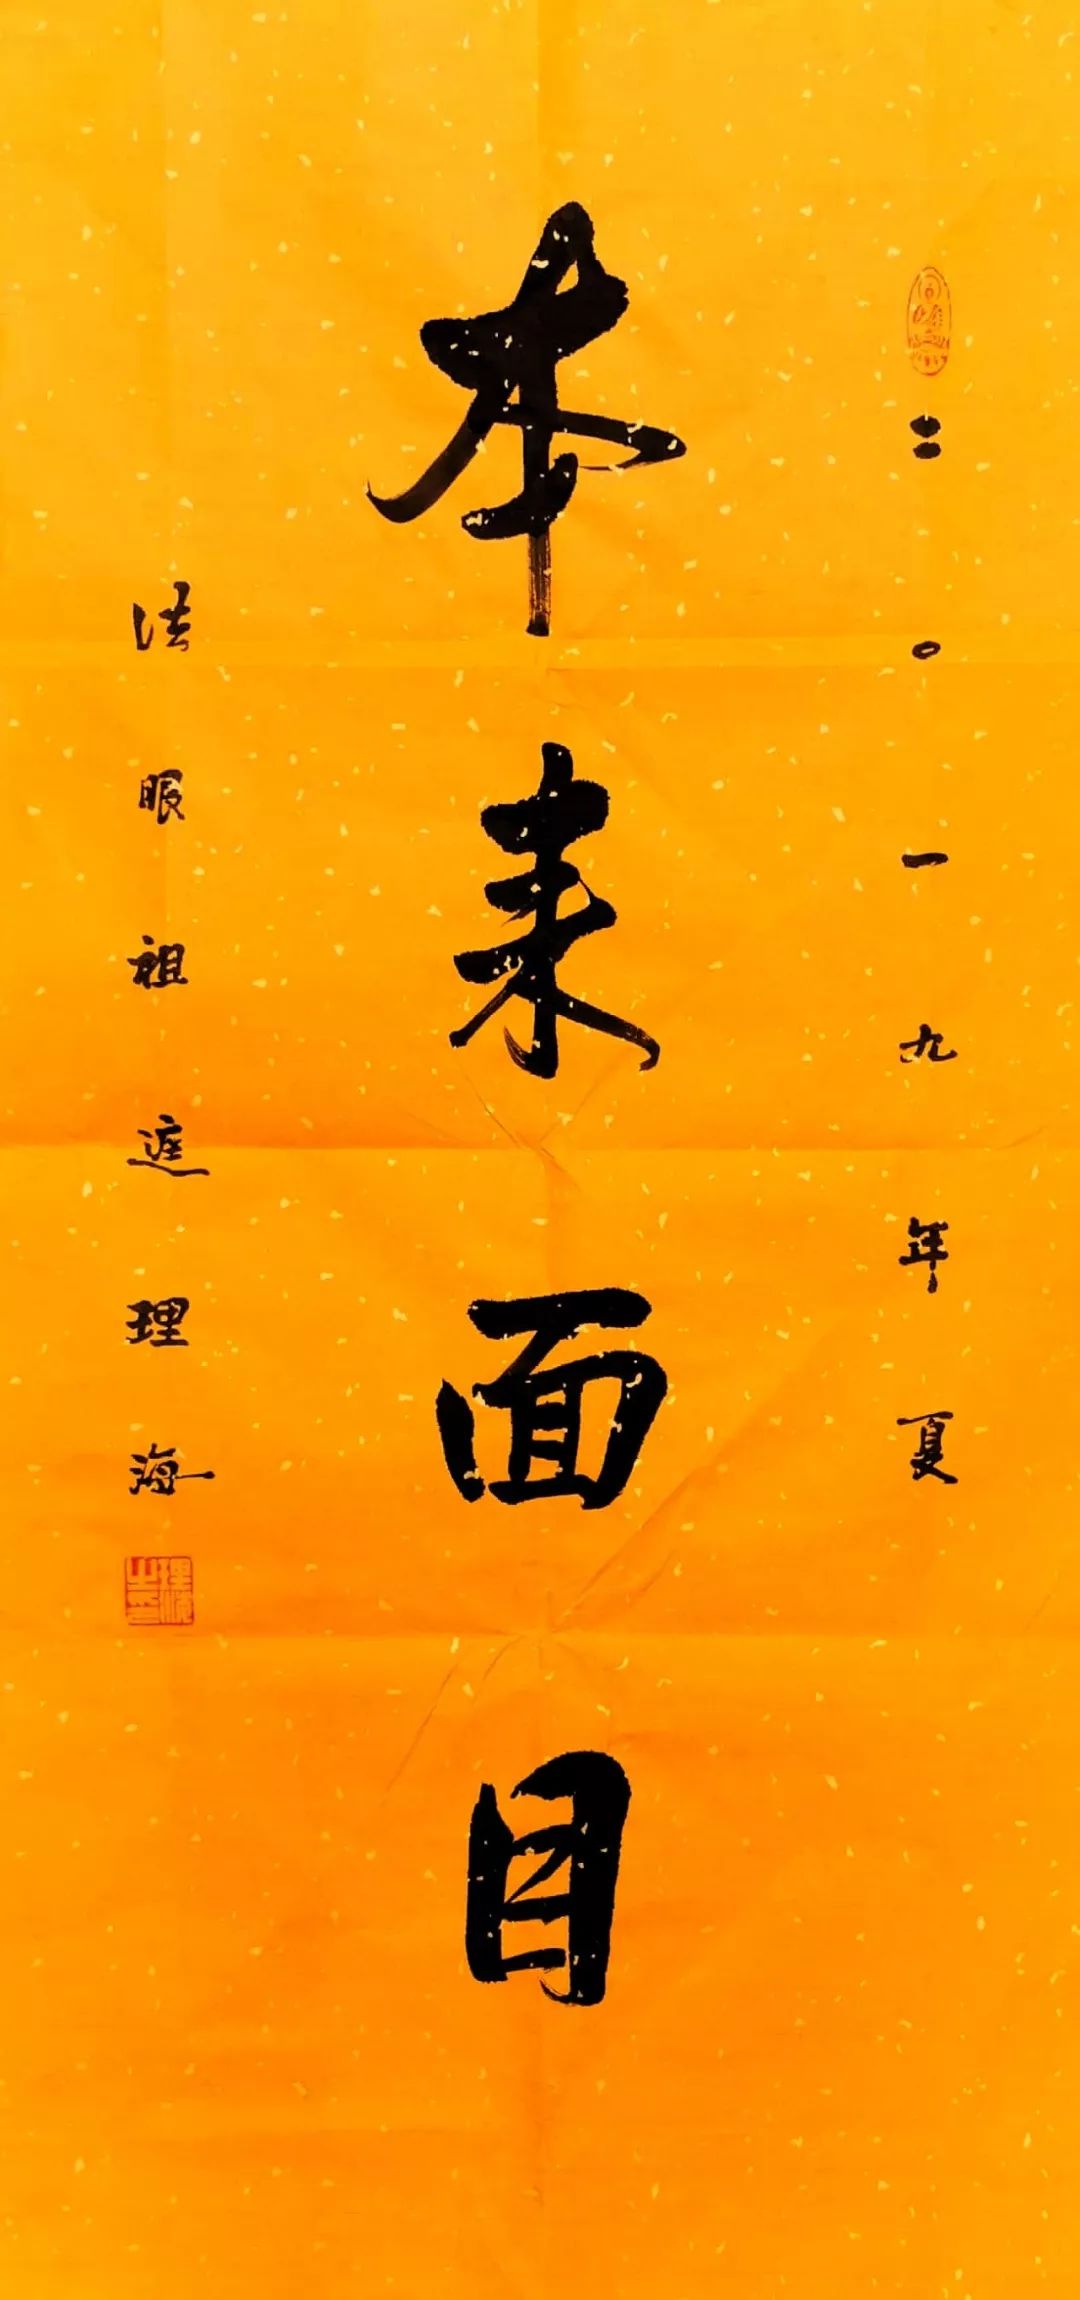 二〇一九年夏
本来面目
法眼祖庭理海